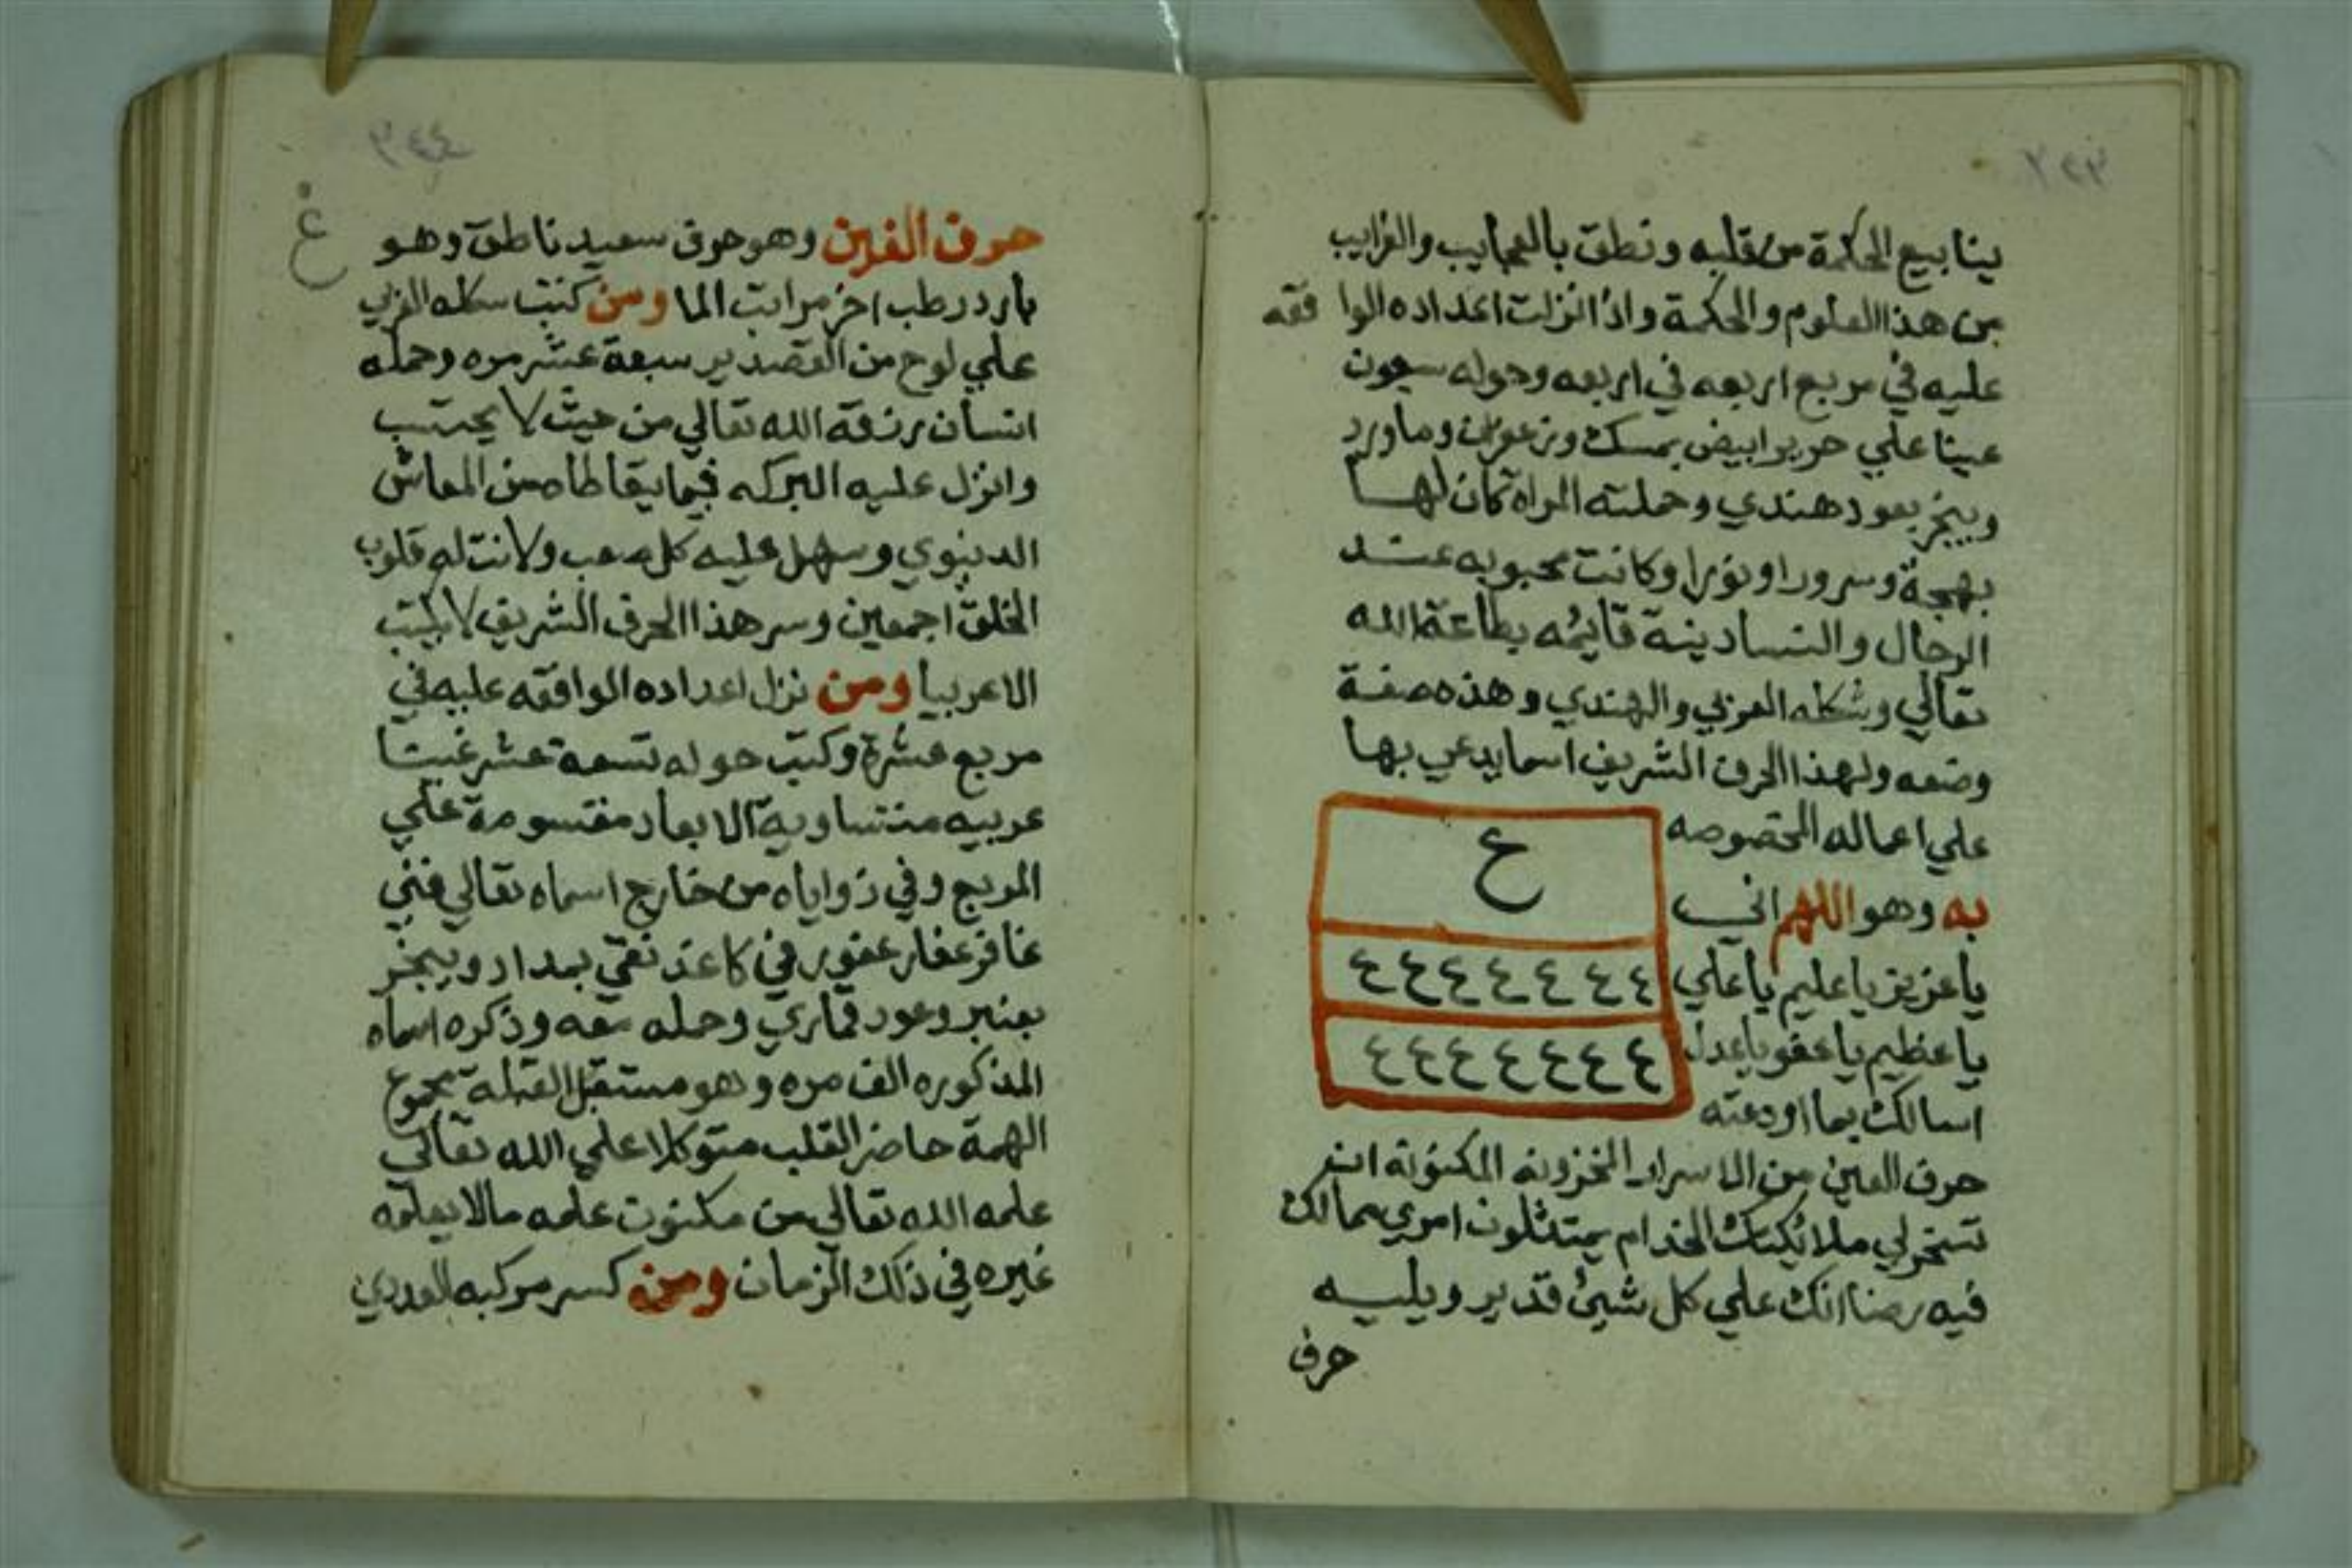 ينابيع الحكمة من قلبه ونطق بالعجايب والغرايب
من هذا العلوم والحكمة واذا نزلت اعداده الوا فقه
عليه في مربع اربعه في اربعه وحوله سبعون
عينا علي حرير ابيض بمسك وزعفران وماورد
ويبخر بعود هندي وحملته المراه كان لها
بهجة وسرورا ونورا وكانت محبوبه عند
الرجال والنسا دينة قايمه بطاعة الله
تعالي وشكله العربي والهندي وهذه صفة
وضعه ولهذا الحرف الشريف اسما يدعي بها
علي اعماله المخصوصه
به وهو اللهم اني
يا عزيز يا عليم يا علي
يا عظيم يا عفو يا عدل
اسالك بما اودعته
ع
٤ ٤ ٤ ٤ ٤ ٤ ٤
٤ ٤ ٤ ٤ ٤ ٤ ٤
حرف العين من الاسرار المخزونه المكنونة ان
تسخر لي ملائكتك الخدام يمتثلون امري مما لك
فيه رضا انك علي كل شيئ قدير ويليه
حرف
٢٤٤
غ
حرف الغين وهو حرف سعيد ناطق وهو
بارد رطب اخر مراتب الما ومن كتب شكله العربي
علي لوح من القصدير سبعة عشر مره وحمله
انسان رزقه الله تعالي من حيث لا يحتسب
وانزل عليه البركه فيما يتعاطاه من المعاش
الدنيوي وسهل عليه كل صعب ولانت له قلوب
الخلق اجمعين وسر هذا الحرف الشريف لا يكتب
الا عربيا ومن نزل اعداده الوافقه عليه في
مربع عشرة وكتب حوله تسعة عشر غينا
عربيه متساوية الابعاد مقسومة علي
المربع وفي زواياه من خارج اسماه تعالي غني
غافر غفار غفور في كاغد نقي بمداد ويبخر
بعنبر وعود قماري وحمله معه وذكره اسماه
المذكوره الف مره وهو مستقبل القبلة مجموع
الهمة حاضر القلب متوكلا علي الله تعالي
علمه الله تعالي من مكنون علمه مالا يعلمه
غيره في ذلك الزمان ومن كسر مركبه العددي